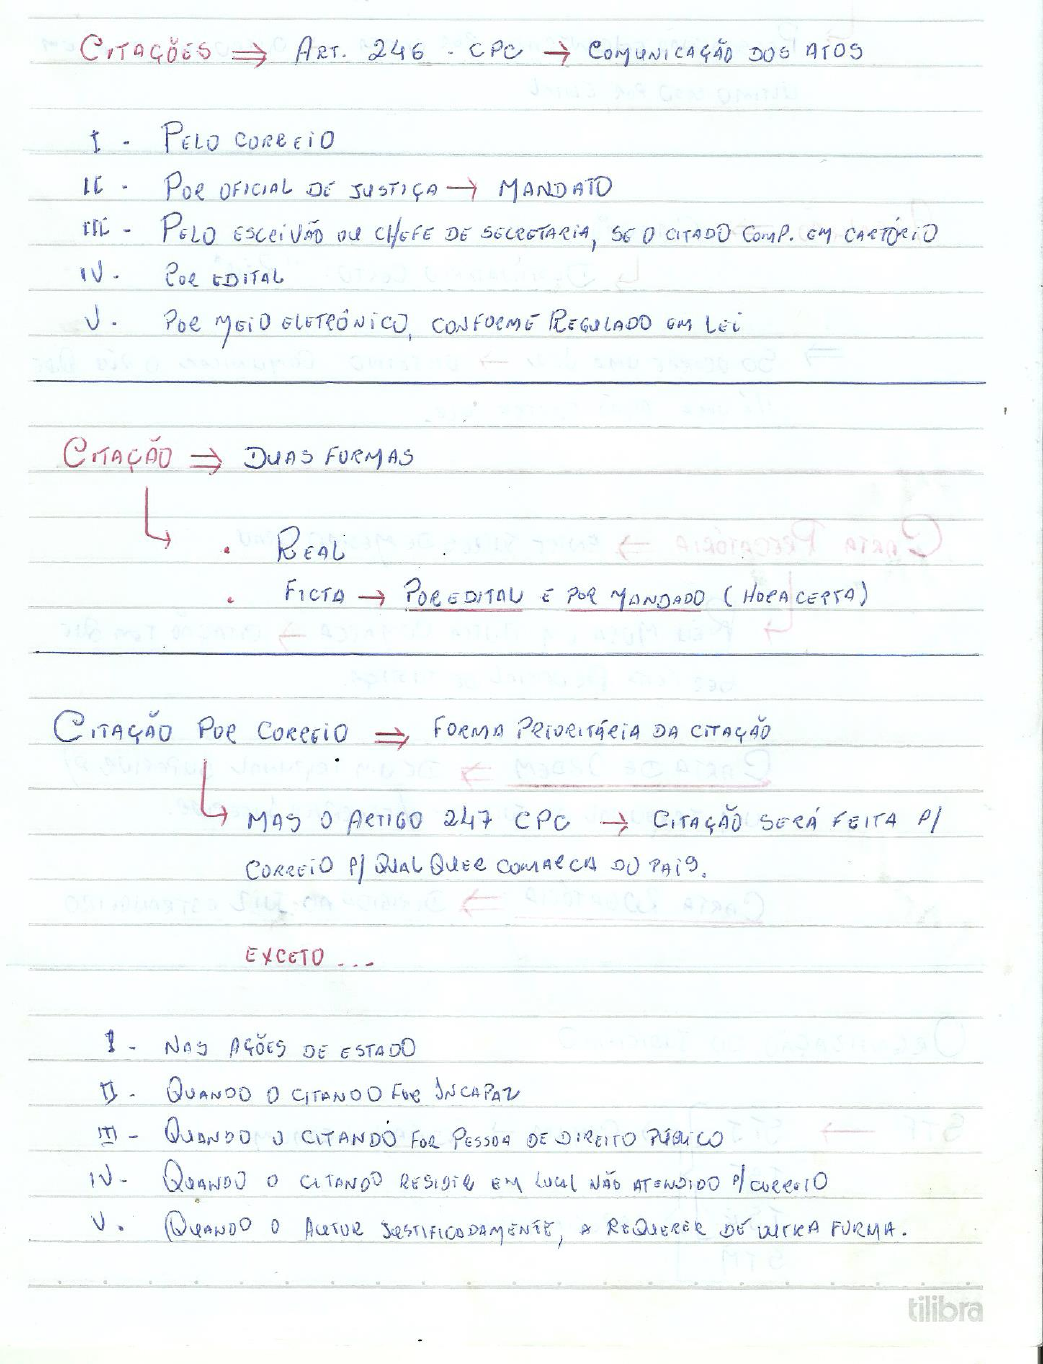 CITAÇÕES ⇒ ART. 246 - CPC → COMUNICAÇÃO DOS ATOS
I - PELO CORREIO
II - POR OFICIAL DE JUSTIÇA → MANDATO
III - PELO ESCRIVÃO OU CHEFE DE SECRETARIA, SE O CITADO COMP. EM CARTÓRIO
IV - POR EDITAL
V - POR MEIO ELETRÔNICO, CONFORME REGULADO EM LEI
CITAÇÃO ⇒ DUAS FORMAS
• REAL
• FICTA → POR EDITAL E POR MANDADO (HORA CERTA)
CITAÇÃO POR CORREIO ⇒ FORMA PRIORITÁRIA DA CITAÇÃO
MAS O ARTIGO 247 CPC → CITAÇÃO SERÁ FEITA P/
CORREIO P/ QUALQUER COMARCA DO PAÍS.
EXCETO ...
I - NAS AÇÕES DE ESTADO
II - QUANDO O CITANDO FOR INCAPAZ
III - QUANDO O CITANDO FOR PESSOA DE DIREITO PÚBLICO
IV - QUANDO O CITANDO RESIDIR EM LOCAL NÃO ATENDIDO P/ CORREIO
V. QUANDO O AUTOR JUSTIFICADAMENTE, A REQUERER DE OUTRA FORMA.
tilibra